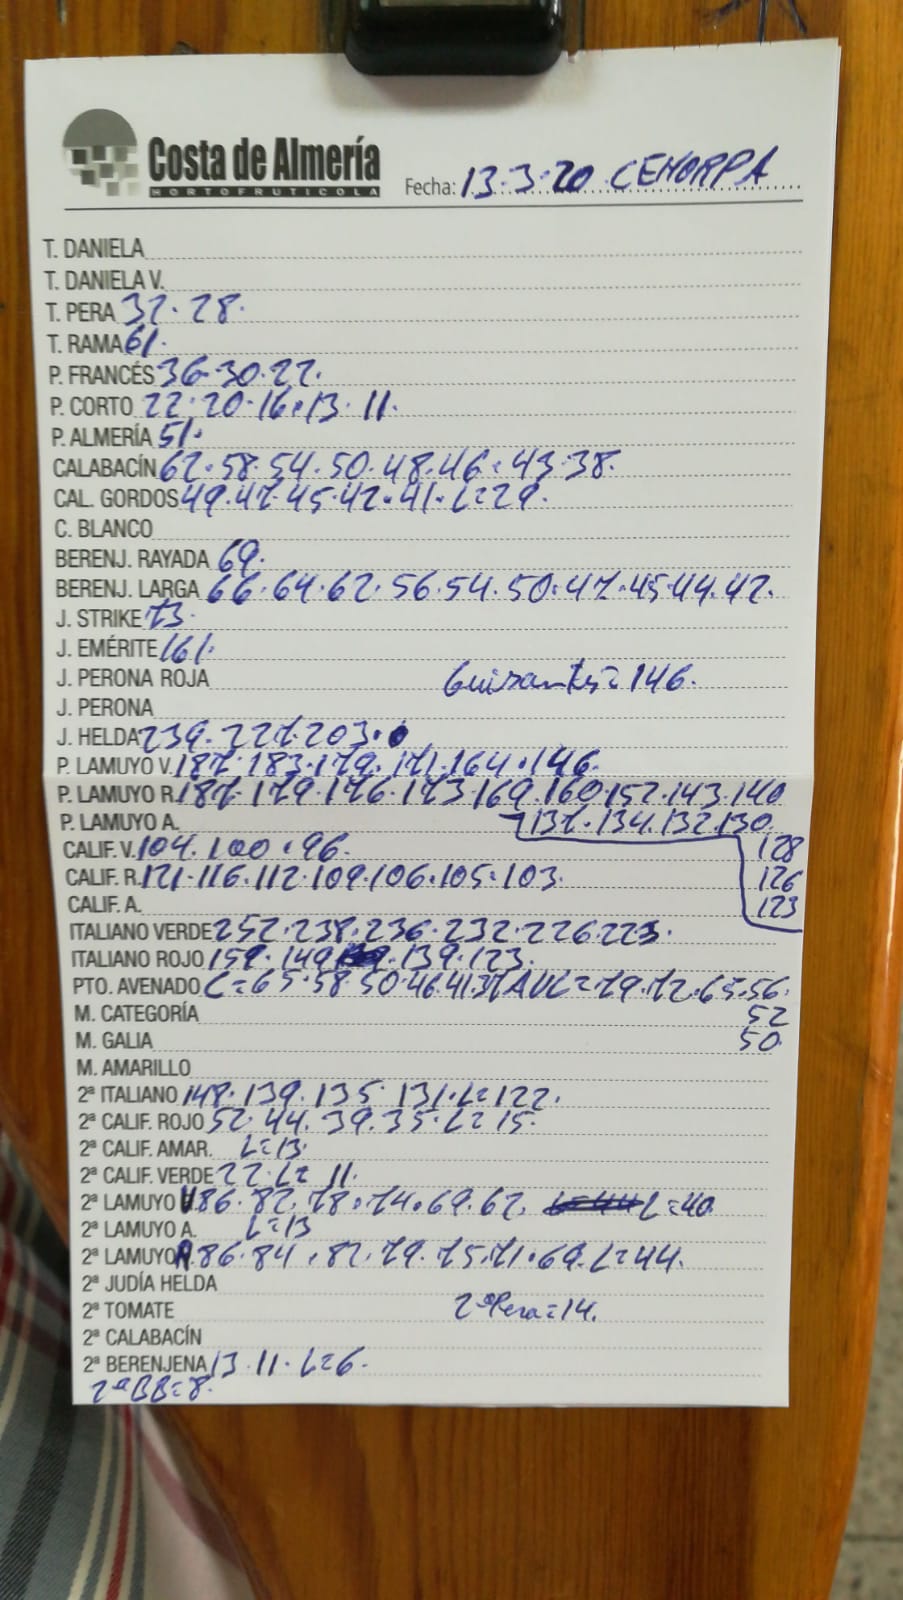 Costa de Almería
HORTOFRUTICOLA
Fecha: 13.3.20 CEHORPA
T. DANIELA
T. DANIELA V.
T. PERA 32. 28.
T. RAMA 61.
P. FRANCÉS 36-30.22.
P. CORTO 22.20.16.13.11.
P. ALMERÍA 51.
CALABACÍN 62.58.54.50.48.46.43.38.
CAL. GORDOS 49.47.45.42.41.L=29.
C. BLANCO
BERENJ. RAYADA 69.
BERENJ. LARGA 66.64.62.56.54.50.47.45.44.42.
J. STRIKE 73.
J. EMÉRITE 161.
J. PERONA ROJA Guisantes=146.
J. PERONA
J. HELDA 239.227.203.
P. LAMUYO V. 187.183.179.171.164.146.
P. LAMUYO R. 187.179.176.173.169.160.152.143.140
P. LAMUYO A. 137.134.132.130
CALIF. V. 104.100.96. 128
CALIF. R. 121.116.112.109.106.105.103. 126
CALIF. A. 123
ITALIANO VERDE 252.238.236.232.226.223.
ITALIANO ROJO 159.149.139.123.
PTO. AVENADO L=65.58.50.46.41.37 AVL=79.72.65.56.
M. CATEGORÍA 52
M. GALIA 50.
M. AMARILLO
2ª ITALIANO 148.139.135.131.L=122.
2ª CALIF. ROJO 52.44.39.35.L=15.
2ª CALIF. AMAR. L=13.
2ª CALIF. VERDE 22.L=11.
2ª LAMUYO V. 86.82.78.74.69.62. L=40
2ª LAMUYO A. L=13
2ª LAMUYO R. 86.84.82.79.75.71.69.L=44.
2ª JUDÍA HELDA
2ª TOMATE 2ªPera=14.
2ª CALABACÍN
2ª BERENJENA 13.11.L=6.
2ªBB=8.